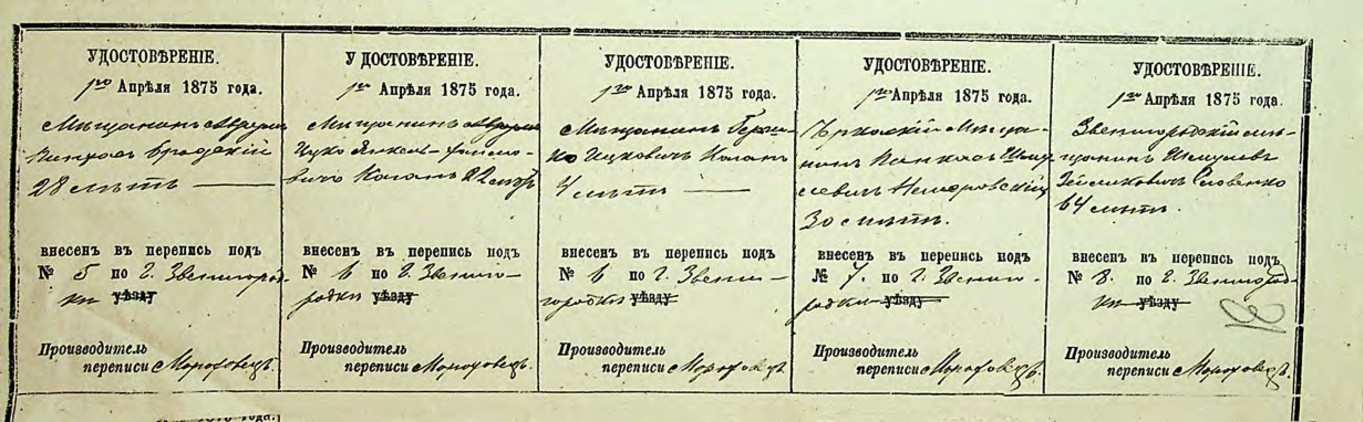 УДОСТОВѢРЕНІЕ.
1го Апрѣля 1875 года.
Мѣщанинъ
Пинхасъ Бродскій
28 лѣтъ
внесенъ въ перепись подъ
№ 5 по г. Звенигород-
ки уѣзду
Производитель
переписи Мороховецъ.
УДОСТОВѢРЕНІЕ.
1го Апрѣля 1875 года.
Мѣщанинъ
Ицко Янкель-
вичъ Каганъ 22 лѣтъ
внесенъ въ перепись подъ
№ 6 по г. Звениго-
родки уѣзду
Производитель
переписи Мороховецъ.
УДОСТОВѢРЕНІЕ.
1го Апрѣля 1875 года.
Мѣщанинъ Герш-
ко Ицковичъ Каганъ
4 лѣтъ
внесенъ въ перепись подъ
№ 6 по г. Звени-
городки уѣзду
Производитель
переписи Мороховецъ
УДОСТОВѢРЕНІЕ.
1го Апрѣля 1875 года.
Мѣща-
нинъ Пинхасъ Шму
левичъ
30 лѣтъ.
внесенъ въ перепись подъ
№ 7. по г. Звениго-
родки уѣзду
Производитель
переписи Мороховецъ.
УДОСТОВѢРЕНІЕ.
1го Апрѣля 1875 года.
Звенигородскій мѣ-
щанинъ Шмулевъ
Словенко
64 лѣтъ.
внесенъ въ перепись подъ
№ 8. по г. Звенигород-
ки уѣзду
Производитель
переписи Мороховецъ.
года.